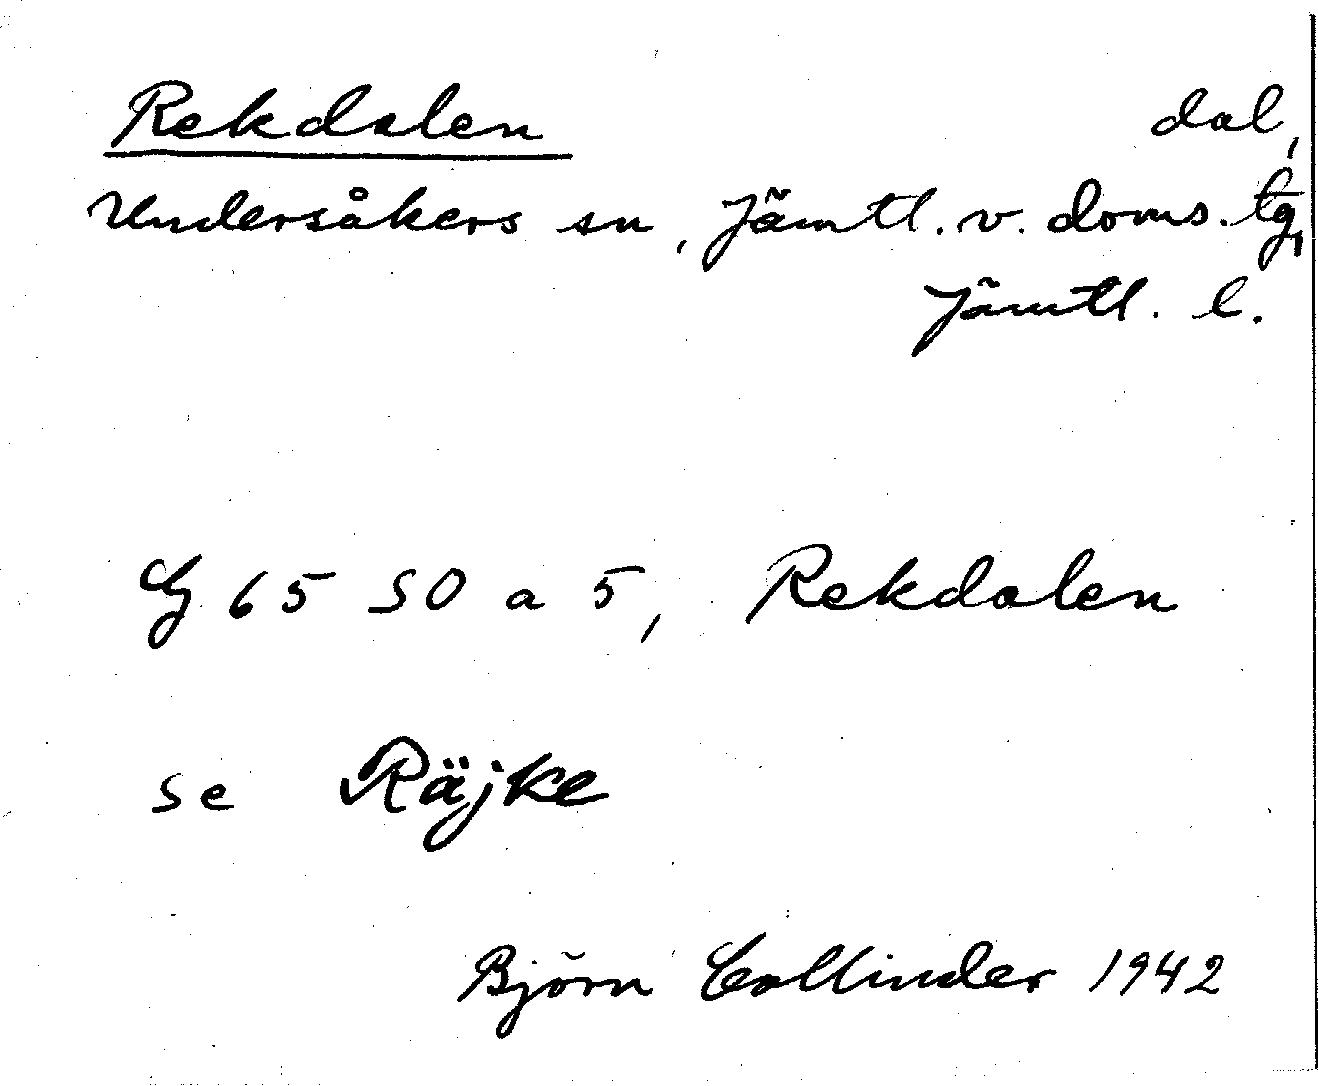 Rekdalen dal,
Undersåkers sn, Jämtl. v. doms. tg,
Jämtl. l.
G 65 SO a 5, Rekdalen
se Räjke
Björn Collinder 1942